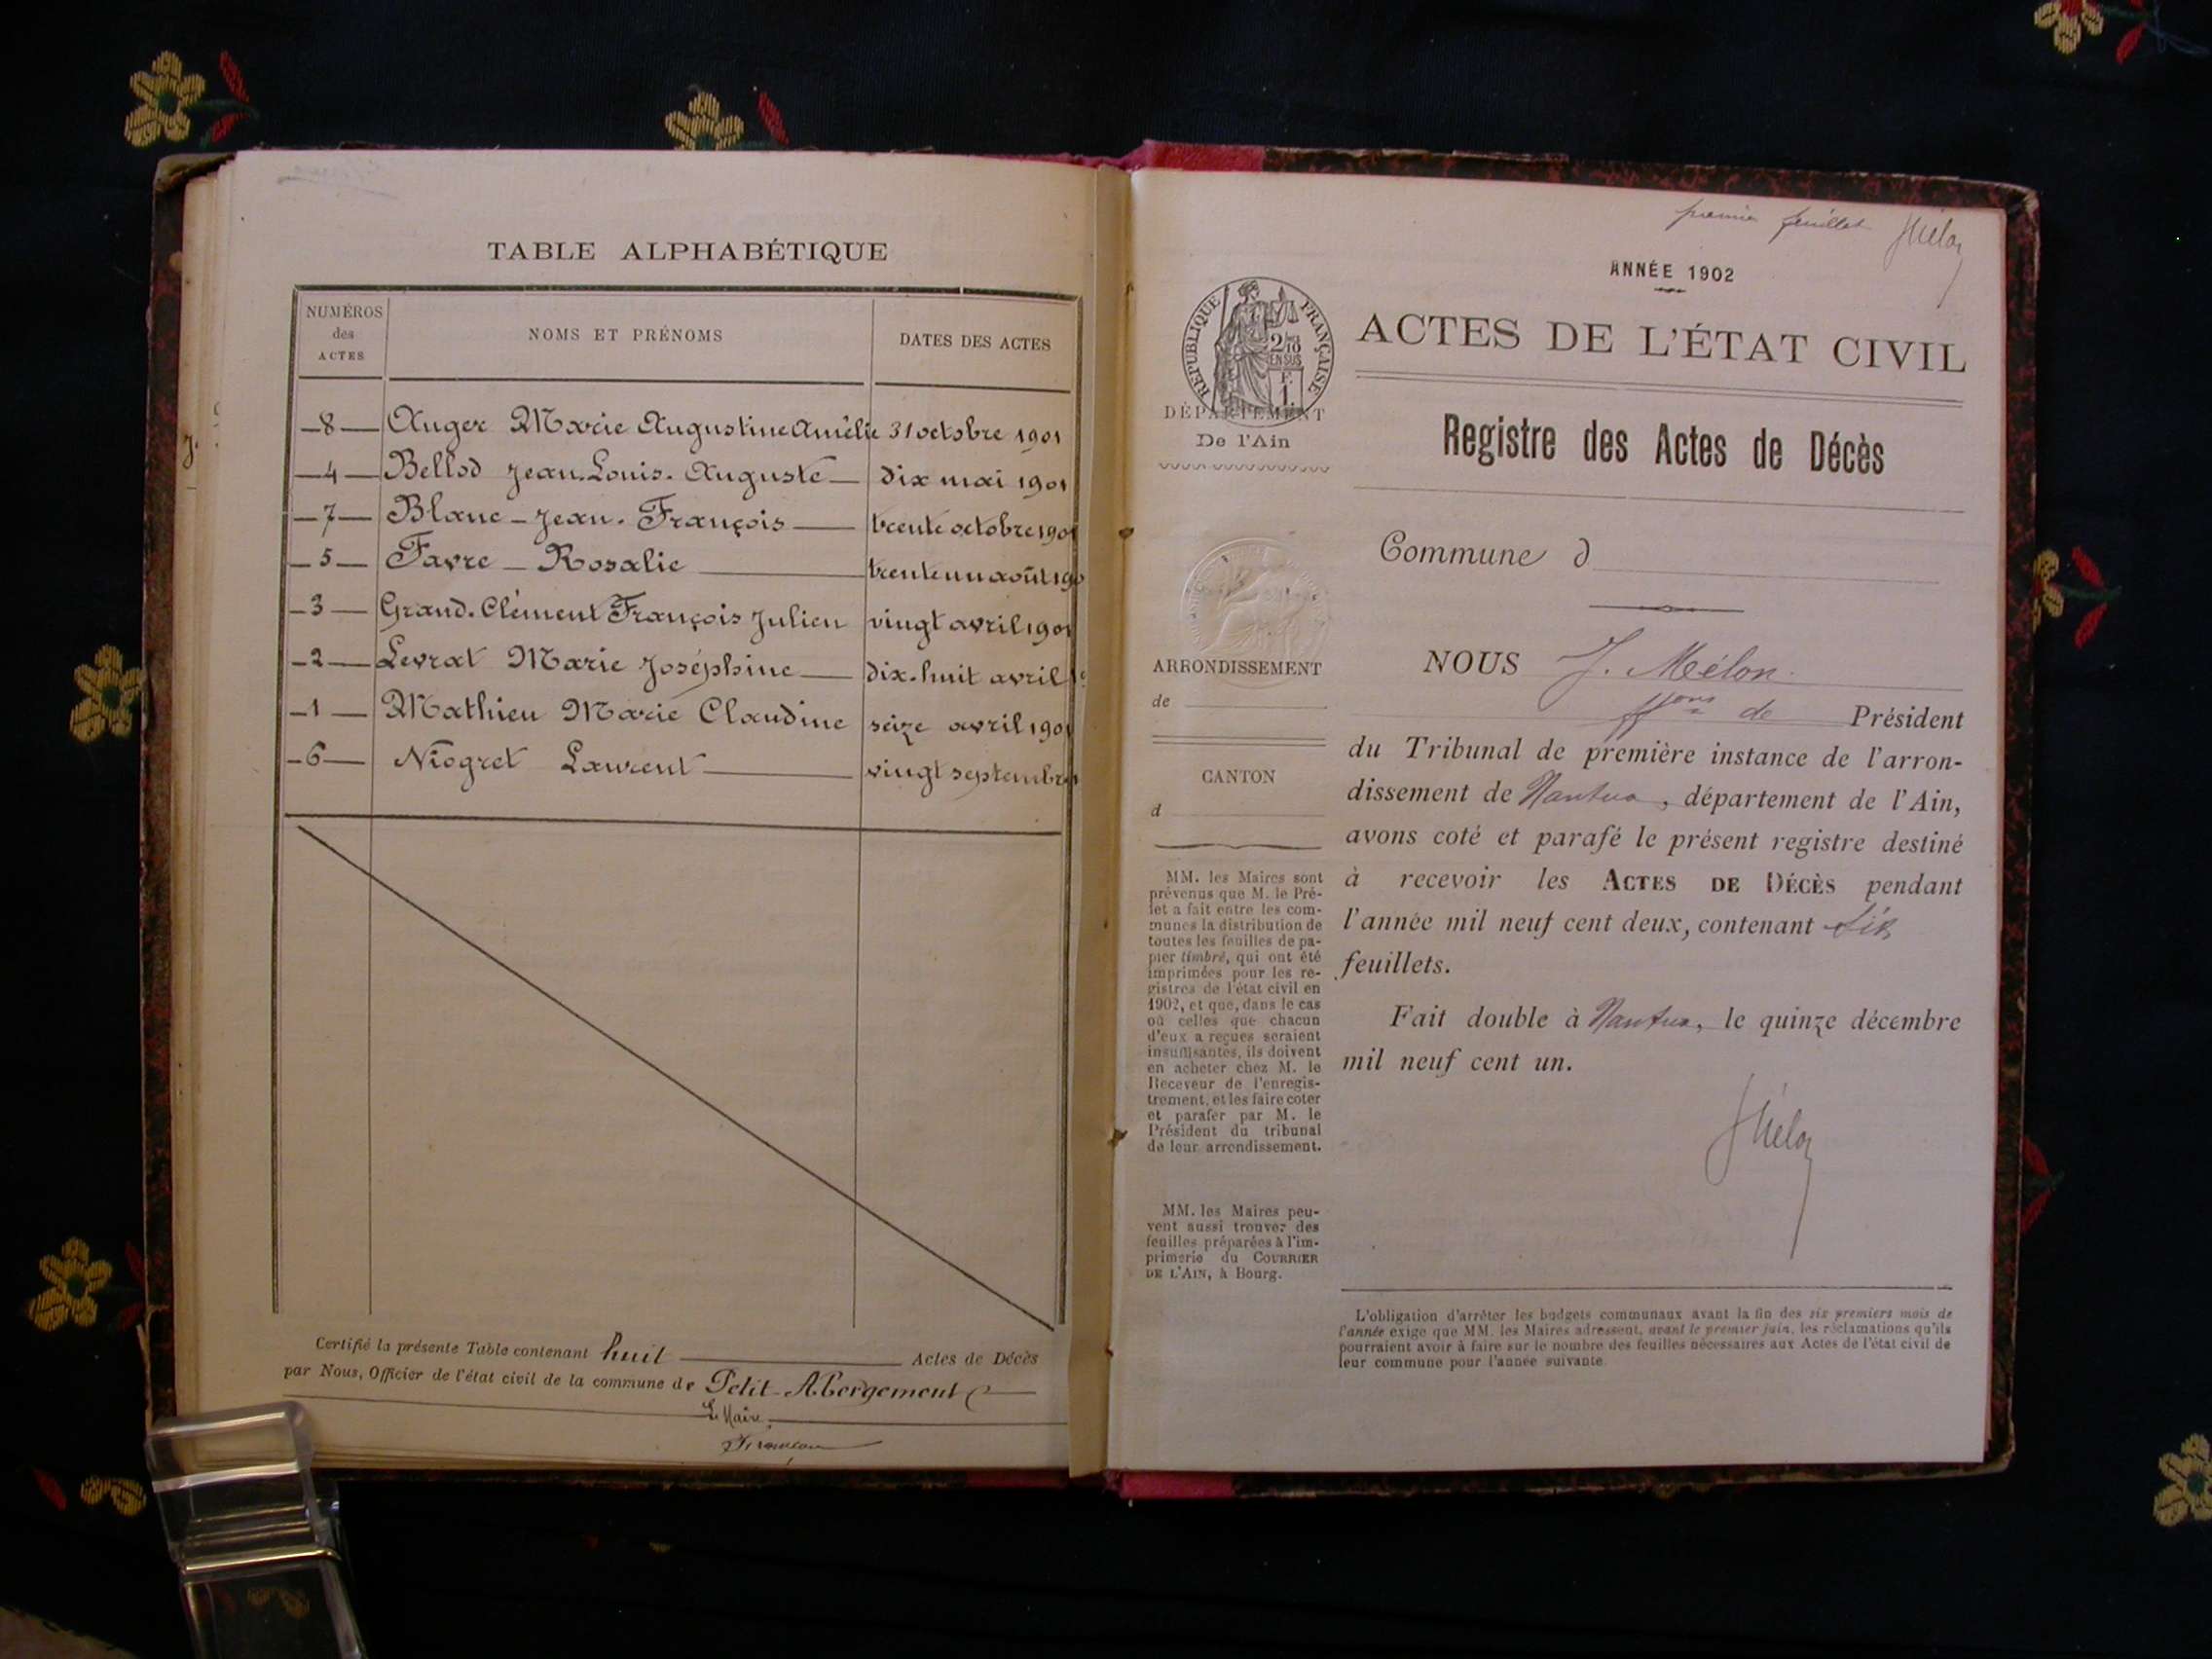 TABLE ALPHABÉTIQUE
NUMÉROS
des
ACTES
NOMS ET PRÉNOMS
DATES DES ACTES
—8— Auger Marie Augustine Amélie 31 octobre 1901
—4— Bellod Jean-Louis-Auguste— dix mai 1901
—7— Blanc-Jean-François— trente octobre 1901
—5— Favre—Rosalie— trente un août 190
—3— Grand-Clément François Julien vingt avril 1901
—2— Levrat Marie Joséphine— dix-huit avril
—1— Mathieu Marie Claudine seize avril 1901
—6— Niogret Laurent— vingt septembre
Certifié la présente Table contenant huit Actes de Décès
par Nous, Officier de l'état civil de la commune de Petit-Abergement
Le Maire
premier feuillet JMélon
ANNÉE 1902
ACTES DE L'ÉTAT CIVIL
Registre des Actes de Décès
RÉPUBLIQUE FRANÇAISE
2/10
EN SUS
F.
1.
DÉPARTEMENT
De l'Ain
ARRONDISSEMENT
de
CANTON
d
MM. les Maires sont
prévenus que M. le Pré-
fet a fait entre les com-
munes la distribution de
toutes les feuilles de pa-
pier timbré, qui ont été
imprimées pour les re-
gistres de l'état civil en
1902, et que, dans le cas
où celles que chacun
d'eux a reçues seraient
insuffisantes, ils doivent
en acheter chez M. le
Receveur de l'enregis-
trement, et les faire coter
et parafer par M. le
Président du tribunal
de leur arrondissement.
MM. les Maires peu-
vent aussi trouver des
feuilles préparées à l'im-
primerie du COURRIER
DE L'AIN, à Bourg.
Commune d
NOUS J. Mélon
ffons de Président
du Tribunal de première instance de l'arron-
dissement de Nantua, département de l'Ain,
avons coté et parafé le présent registre destiné
à recevoir les ACTES DE DÉCÈS pendant
l'année mil neuf cent deux, contenant six
feuillets.
Fait double à Nantua, le quinze décembre
mil neuf cent un.
JMélon
L'obligation d'arrêter les budgets communaux avant la fin des six premiers mois de
l'année exige que MM. les Maires adressent, avant le premier juin, les réclamations qu'ils
pourraient avoir à faire sur le nombre des feuilles nécessaires aux Actes de l'état civil de
leur commune pour l'année suivante.